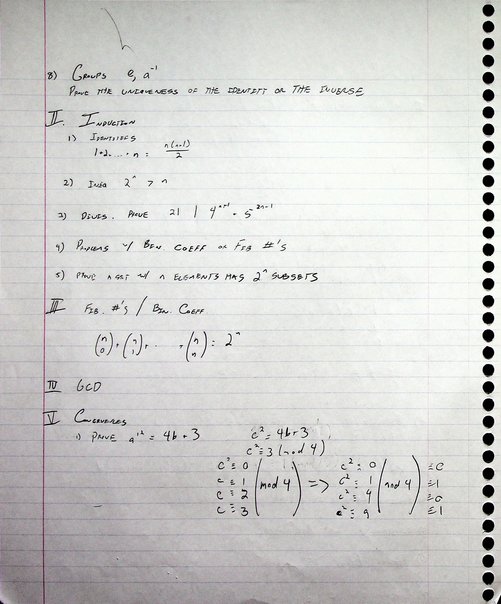 8) GROUPS e, a⁻¹
PROVE THE UNIQUENESS OF THE IDENTITY OR THE INVERSE
II. INDUCTION
1) IDENTITIES
1+2...+n = n(n+1)/2
2) INEQ 2ⁿ > n
3) DIVIS. PROVE 21 | 4ⁿ⁺¹ + 5²ⁿ⁻¹
4) PROBLEMS W/ BIN. COEFF OR FIB #'S
5) PROVE A SET W/ n ELEMENTS HAS 2ⁿ SUBSETS
III FIB. #'S / BIN. COEFF
(n 0) + (n 1) + . . . + (n n) = 2ⁿ
IV GCD
V CONGRUENCES
1) PROVE a² = 4b + 3 c² = 4b+3
c² ≡ 3 (mod 4)
c ≡ 0 c² ≡ 0 ≡ 0
c ≡ 1 (mod 4) => c² ≡ 1 (mod 4) ≡ 1
c ≡ 2 c² ≡ 4 ≡ 0
c ≡ 3 c² ≡ 9 ≡ 1